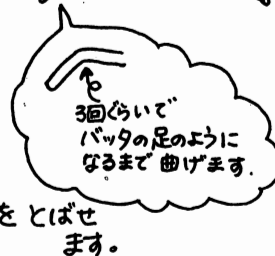 3回ぐらいで
バッタの足のように
なるまで曲げます.
をとばせ
ます。